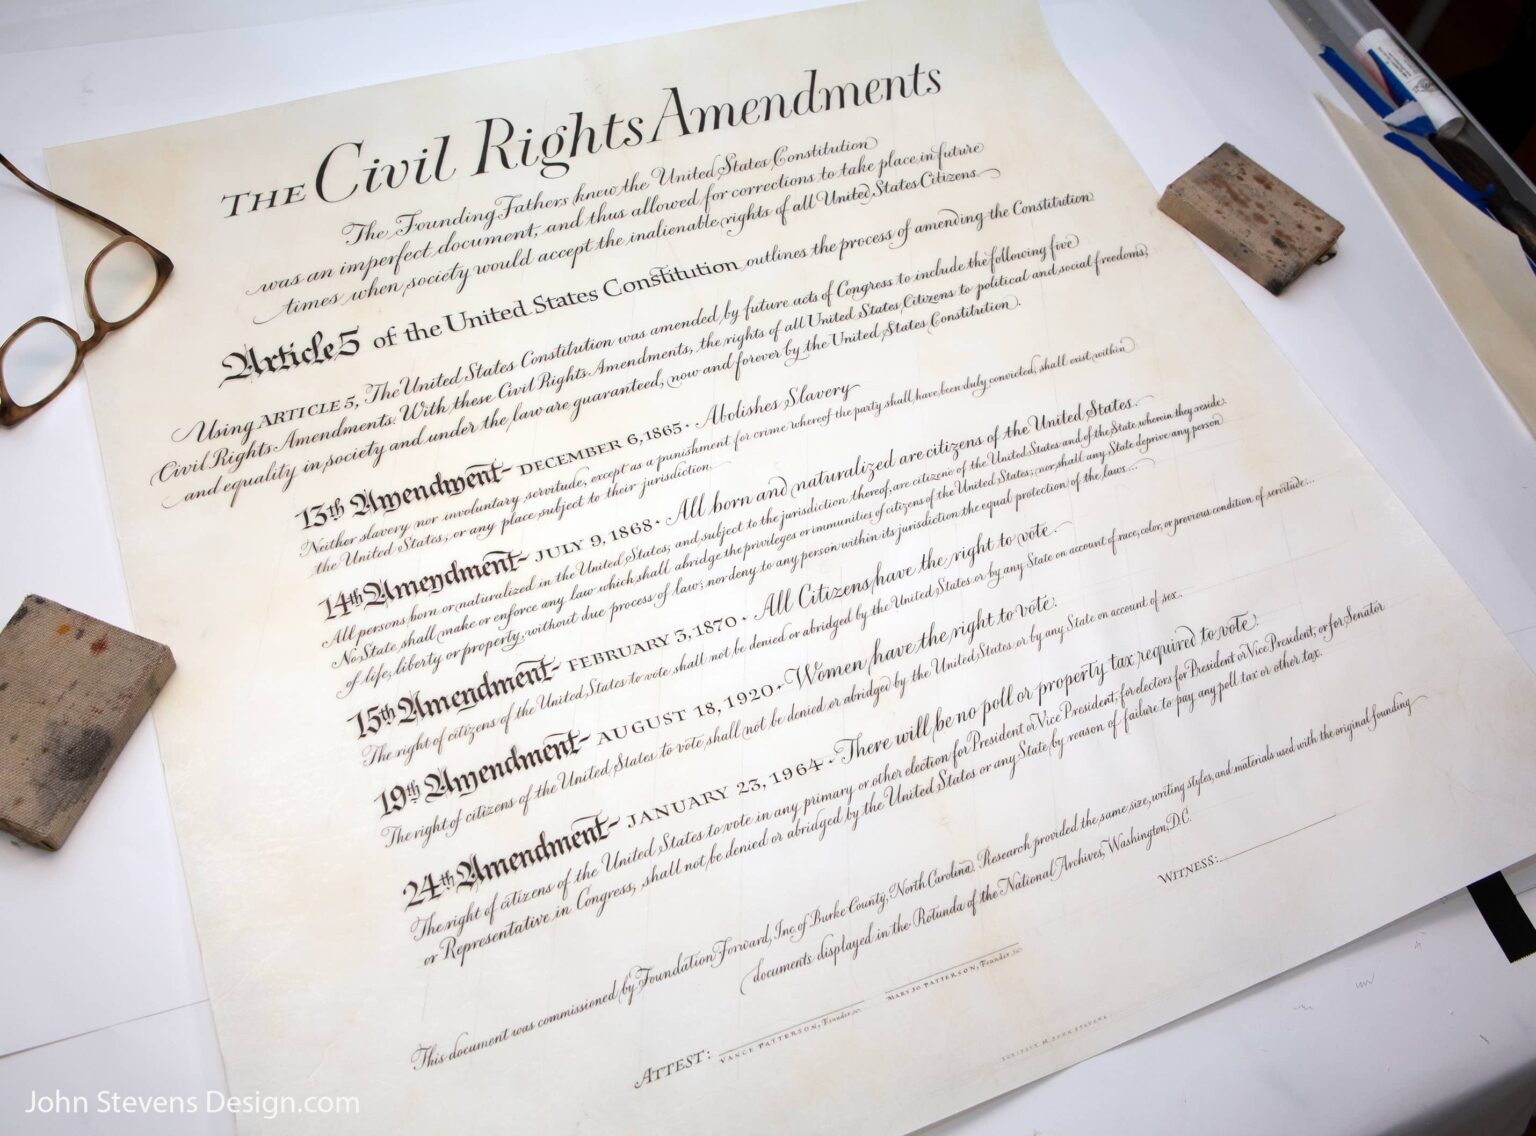 THE Civil Rights Amendments
The Founding Fathers knew the United States Constitution
was an imperfect document, and thus allowed for corrections to take place in future
times when society would accept the inalienable rights of all United States Citizens
Article 5 of the United States Constitution outlines the process of amending the Constitution
Using ARTICLE 5, The United States Constitution was amended by future acts of Congress to include the following five
Civil Rights Amendments. With these Civil Rights Amendments, the rights of all United States Citizens to political and social freedoms,
and equality in society and under the law are guaranteed, now and forever by the United States Constitution.
13th Amendment - DECEMBER 6, 1865 · Abolishes Slavery
Neither slavery nor involuntary servitude, except as a punishment for crime whereof the party shall have been duly convicted, shall exist within
the United States, or any place subject to their jurisdiction.
14th Amendment - JULY 9, 1868 · All born and naturalized are citizens of the United States.
All persons born or naturalized in the United States, and subject to the jurisdiction thereof, are citizens of the United States and of the State wherein they reside.
No State shall make or enforce any law which shall abridge the privileges or immunities of citizens of the United States; nor shall any State deprive any person
of life, liberty or property, without due process of law; nor deny to any person within its jurisdiction the equal protection of the laws...
15th Amendment - FEBRUARY 3, 1870 · All Citizens have the right to vote.
The right of citizens of the United States to vote shall not be denied or abridged by the United States or by any State on account of race, color, or previous condition of servitude...
19th Amendment - AUGUST 18, 1920 · Women have the right to vote.
The right of citizens of the United States to vote shall not be denied or abridged by the United States or by any State on account of sex.
24th Amendment - JANUARY 23, 1964 · There will be no poll or property tax required to vote.
The right of citizens of the United States to vote in any primary or other election for President or Vice President, for electors for President or Vice President, or for Senator
or Representative in Congress, shall not be denied or abridged by the United States or any State by reason of failure to pay any poll tax or other tax.
This document was commissioned by Foundation Forward, Inc. of Burke County, North Carolina. Research provided the same size, writing styles, and materials used with the original founding
documents displayed in the Rotunda of the National Archives, Washington, D.C.
WITNESS:
ATTEST:
VANCE PATTERSON, Founder
MARY JO PATTERSON, Founder
JOHN STEVENS
John Stevens Design.com